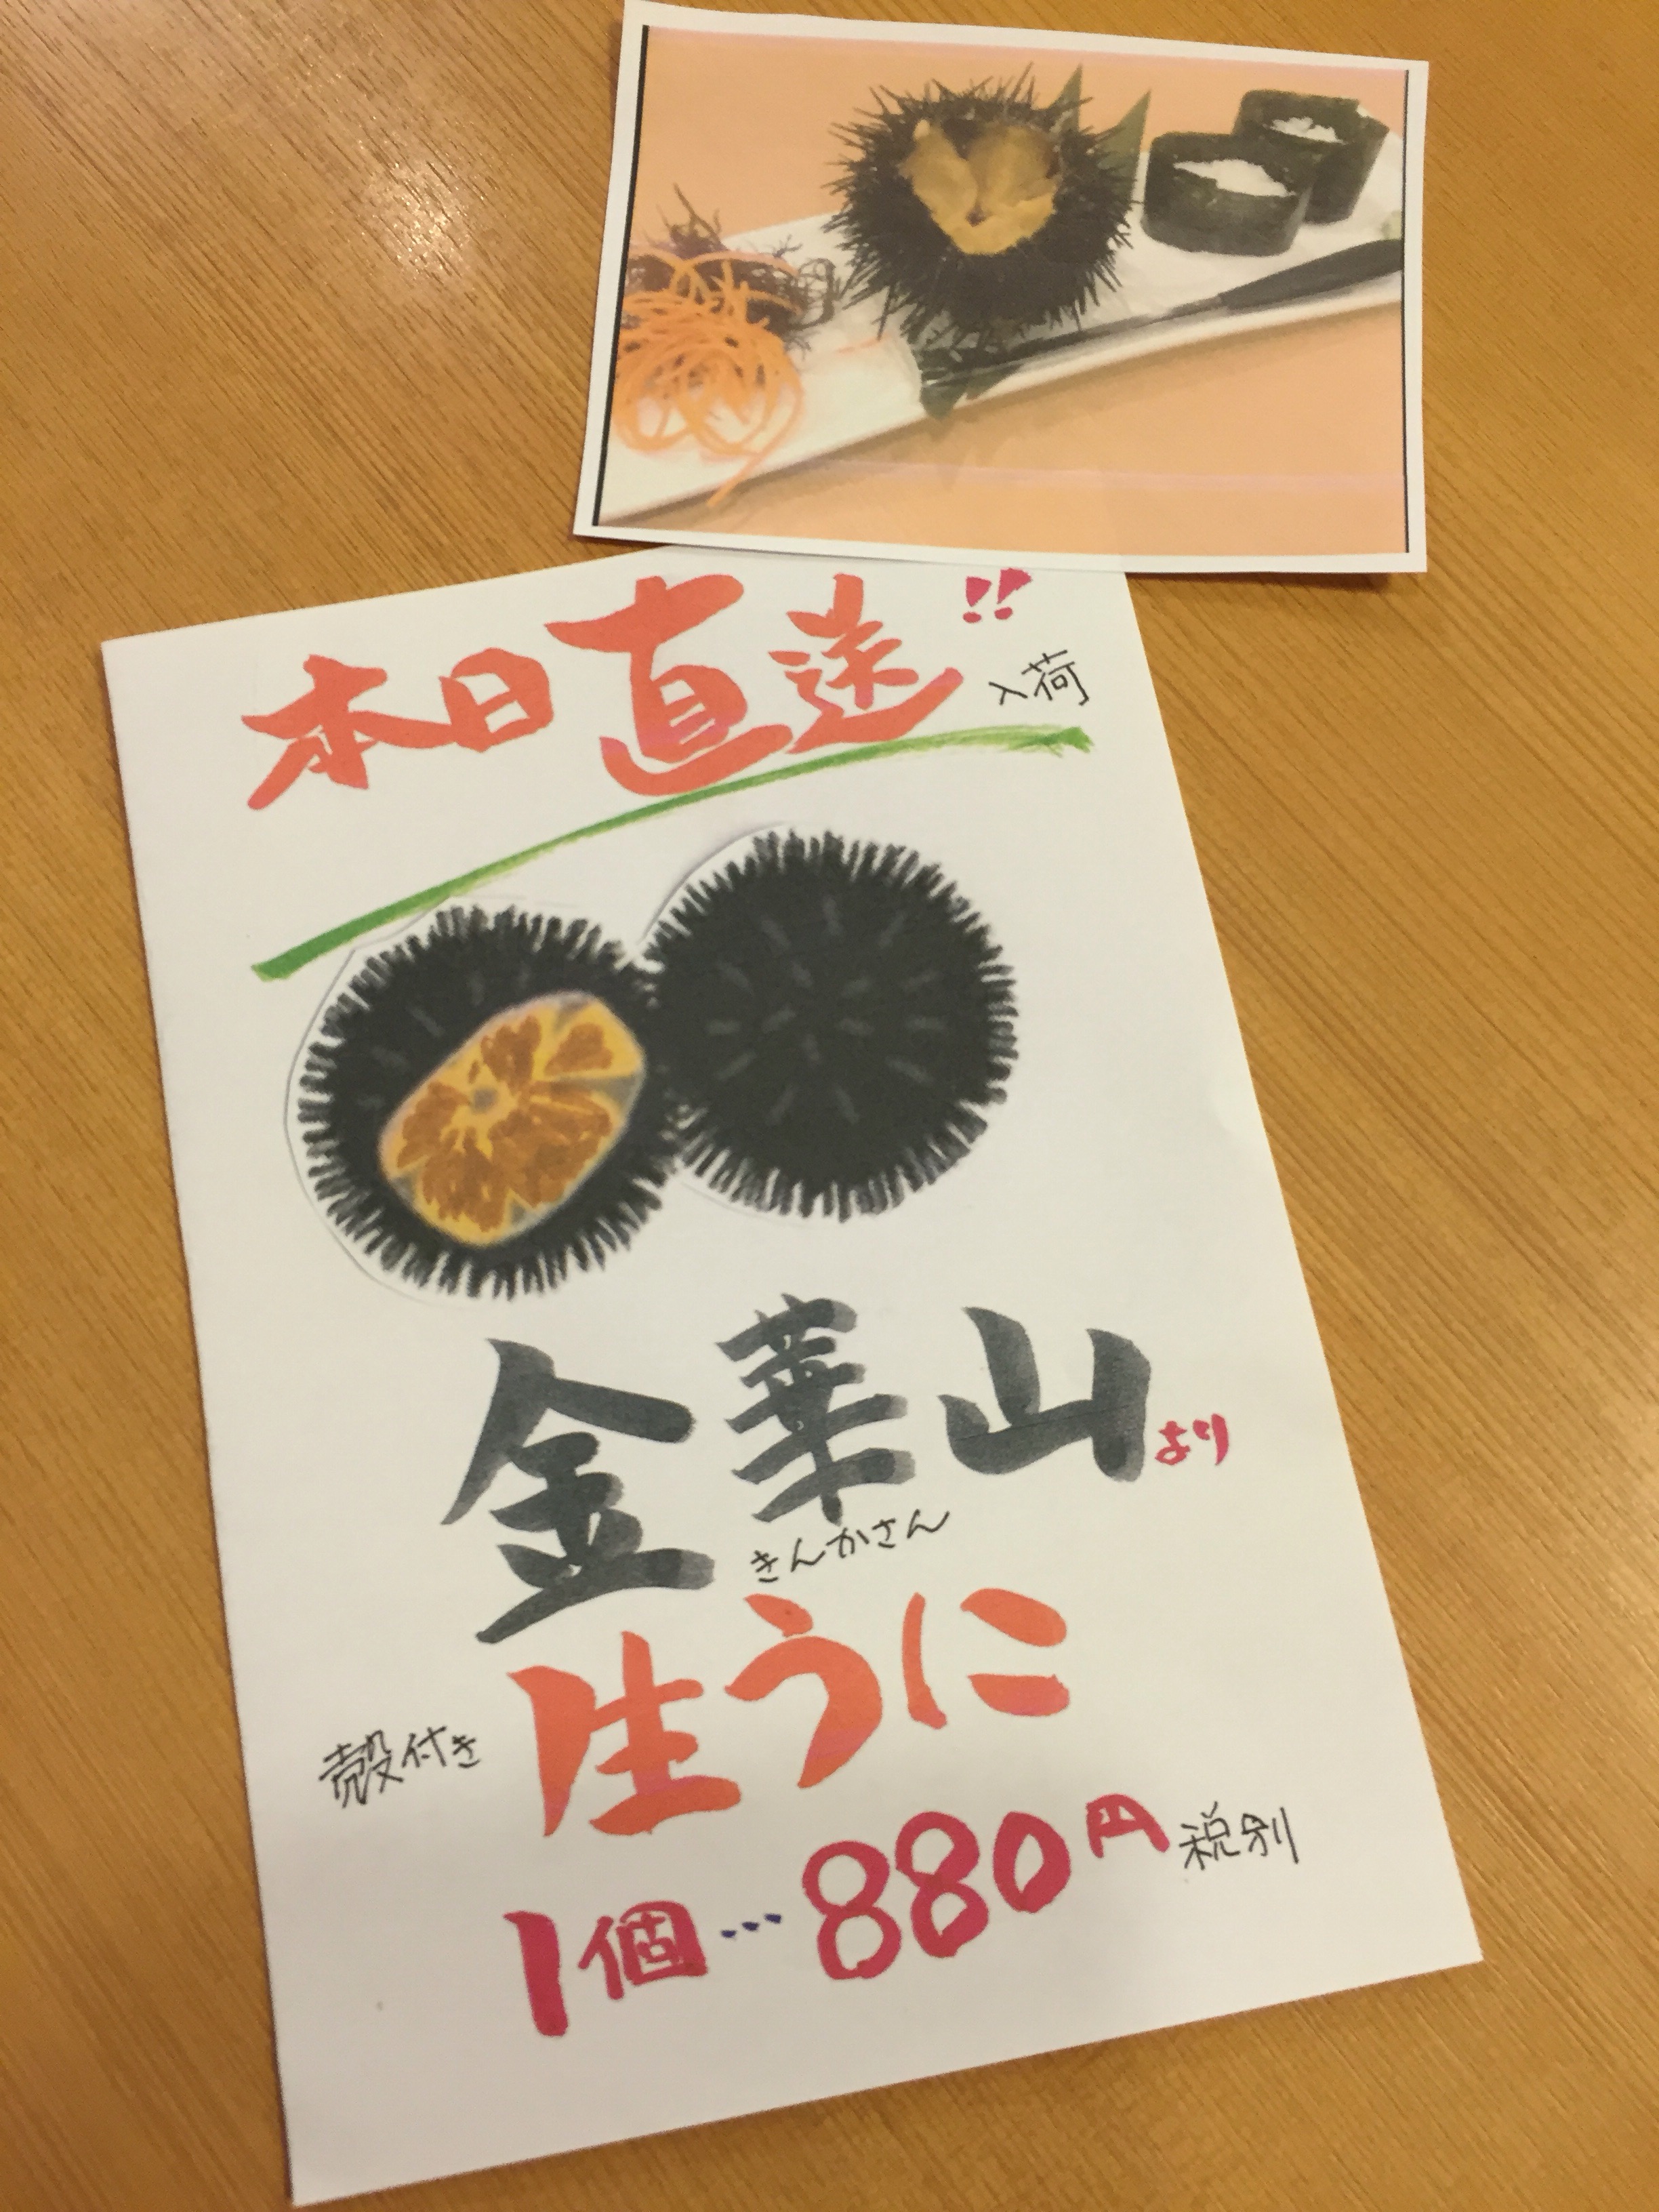 本日直送!!入荷
金華山より
きんかさん
殻付き生うに
1個…880円税別